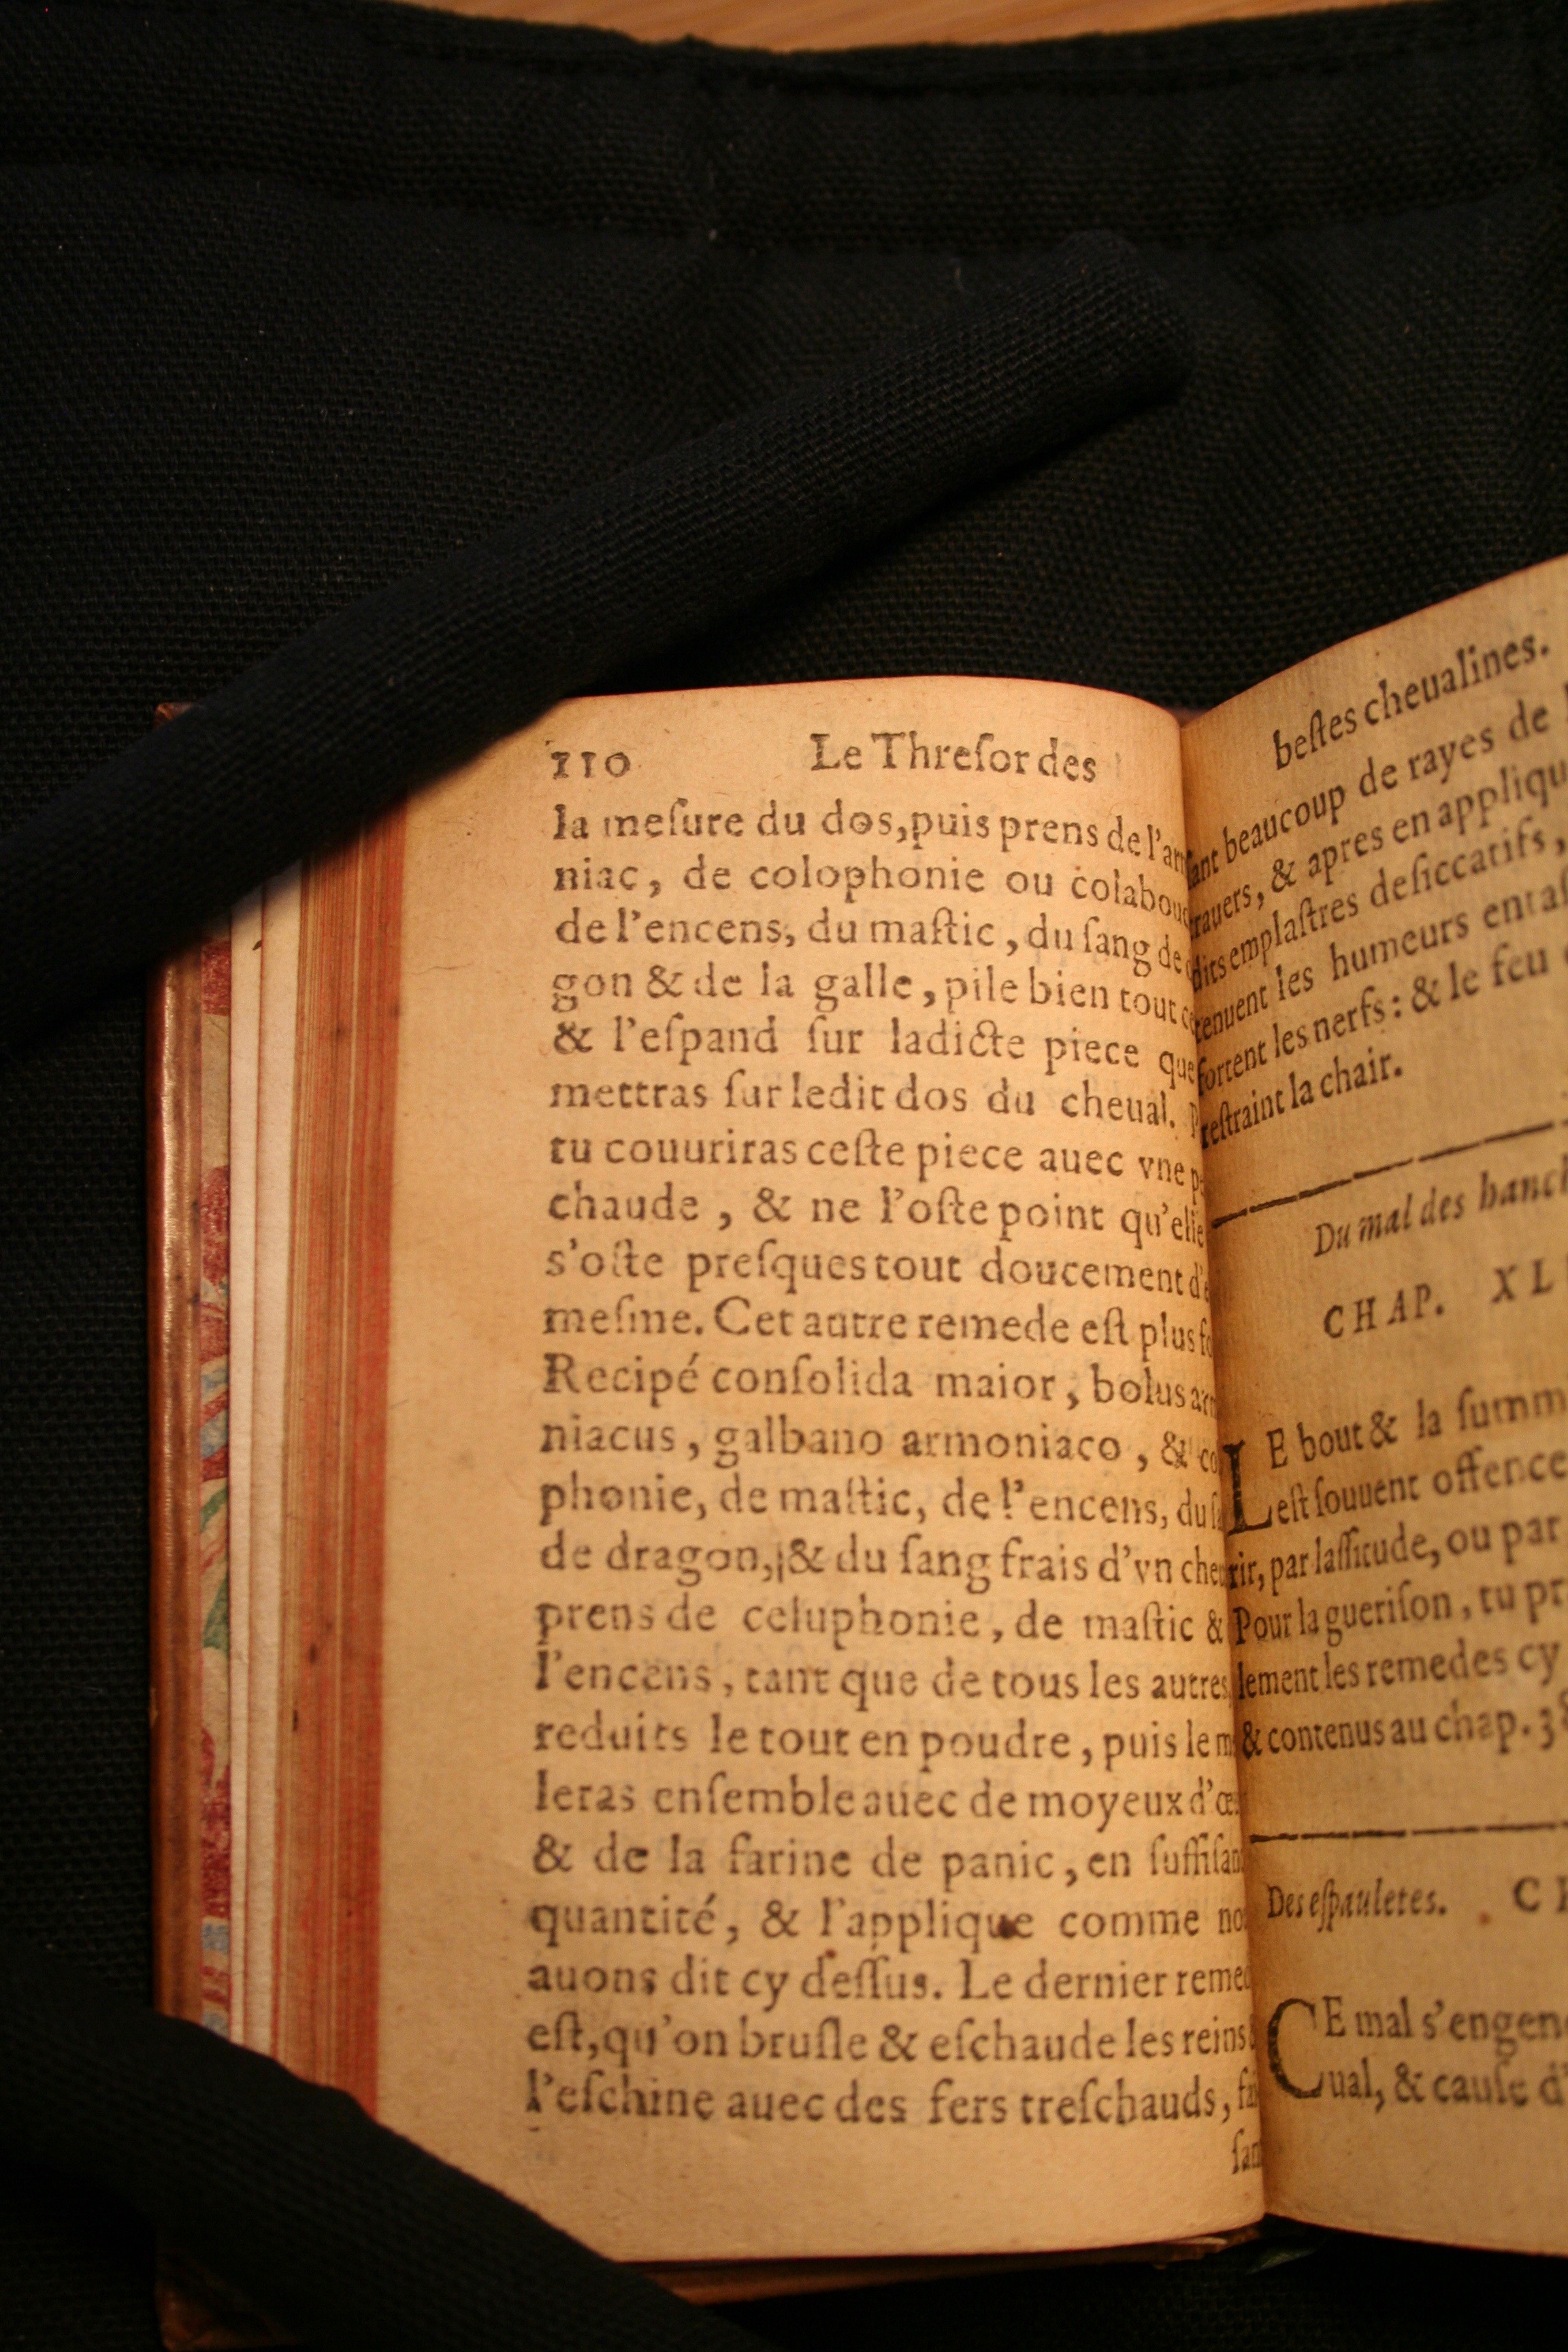 110 Le Threſor des
la meſure du dos, puis prens de l'ar
niac, de colophonie ou colabou
de l'encens, du maſtic, du ſang de
gon & de la galle, pile bien tout
& l'eſpand ſur ladicte piece que
mettras ſur ledit dos du cheual.
tu couuriras ceſte piece auec vne
chaude, & ne l'oſte point qu'elle
s'oſte preſques tout doucement d'
meſme. Cet autre remede eſt plus
Recipé conſolida maior, bolus
niacus, galbano armoniaco, & co
phonie, de maſtic, de l'encens, du
de dragon, & du ſang frais d'vn
prens de celuphonie, de maſtic &
l'encens, tant que de tous les autres
reduits le tout en poudre, puis le
leras enſemble auec de moyeux d'œ
& de la farine de panic, en ſuffiſan
quantité, & l'applique comme no
auons dit cy deſſus. Le dernier reme
eſt, qu'on bruſle & eſchaude les reins
l'eſchine auec des fers treſchauds,
ſan
beſtes cheualines.
ſant beaucoup de rayes de
trauers, & apres en appliqu
dits emplaſtres deſiccatifs,
tenuent les humeurs entaſ
fortent les nerfs: & le feu
reſtraint la chair.
Du mal des hanch
CHAP. XL
LE bout & la ſumm
eſt ſouuent offence
rir, par laſſitude, ou par
Pour la gueriſon, tu pr
lement les remedes cy
& contenus au chap. 38
Des eſpauletes. CH
CE mal s'engen
ual, & cauſe d'